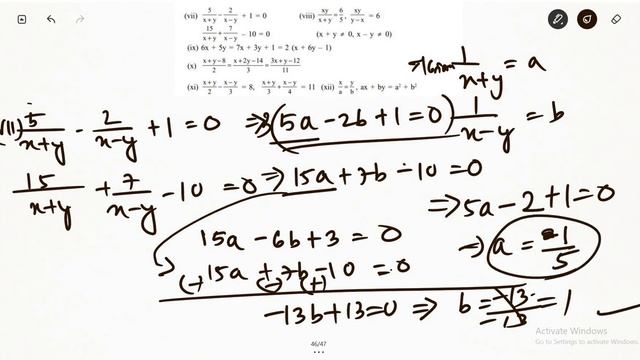 (vii) 5/(x+y) - 2/(x-y) + 1 = 0 (viii) xy/(x+y) = 6/5, xy/(y-x) = 6
15/(x+y) + 7/(x-y) - 10 = 0 (x + y ≠ 0, x - y ≠ 0)
(ix) 6x + 5y = 7x + 3y + 1 = 2 (x + 6y - 1)
(x) (x+y-8)/2 = (x+2y-14)/3 = (3x+y-12)/11
(xi) (x+y)/2 - (x-y)/3 = 8, (x+y)/3 + (x-y)/4 = 11 (xii) x/a = y/b, ax + by = a² + b²
1/(x+y) = a
5/(x+y) - 2/(x-y) + 1 = 0 ⇒ 3(5a - 2b + 1 = 0) 1/(x-y) = b
15/(x+y) + 7/(x-y) - 10 = 0 ⇒ 15a + 7b - 10 = 0
⇒ 5a - 2 + 1 = 0
15a - 6b + 3 = 0 ⇒ a = 1/5
15a + 7b - 10 = 0
(-) (-) (+)
-13b + 13 = 0 ⇒ b = -13/-13 = 1
46/47
Activate Windows
Go to Settings to activate Windows.